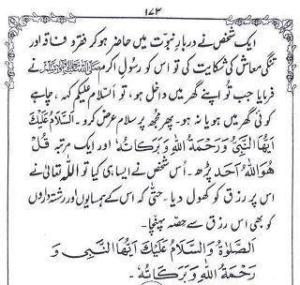 ۱۷۳
ایک شخص نے دربارِ نبوّت میں حاضر ہو کر فقر و فاقہ اور
تنگیٔ معاش کی شکایت کی تو اس کو رسولِ اکرم صلی اللہ علیہ وسلم نے
فرمایا جب تُو اپنے گھر میں داخل ہو، تو السّلام علیکم کہہ، چاہے
کوئی گھر میں ہو یا نہ ہو۔ پھر مجھ پر سلام عرض کرو۔ اَلسَّلَامُ عَلَيْكَ
اَيُّهَا النَّبِيُّ وَرَحْمَةُ اللّٰهِ وَبَرَكَاتُهٗ اور ایک مرتبہ قُلْ
هُوَ اللّٰهُ اَحَد پڑھ۔ اُس شخص نے ایسا ہی کیا تو اللہ تعالیٰ نے
اس پر رزق کو کھول دیا۔ حتیّٰ کہ اس کے ہمسایوں اور رشتہ داروں
کو بھی اس رزق سے حصّہ پہنچا۔
اَلصَّلٰوةُ وَالسَّلَامُ عَلَيْكَ اَيُّهَا النَّبِيُّ وَ
رَحْمَةُ اللّٰهِ وَبَرَكَاتُهٗ۔